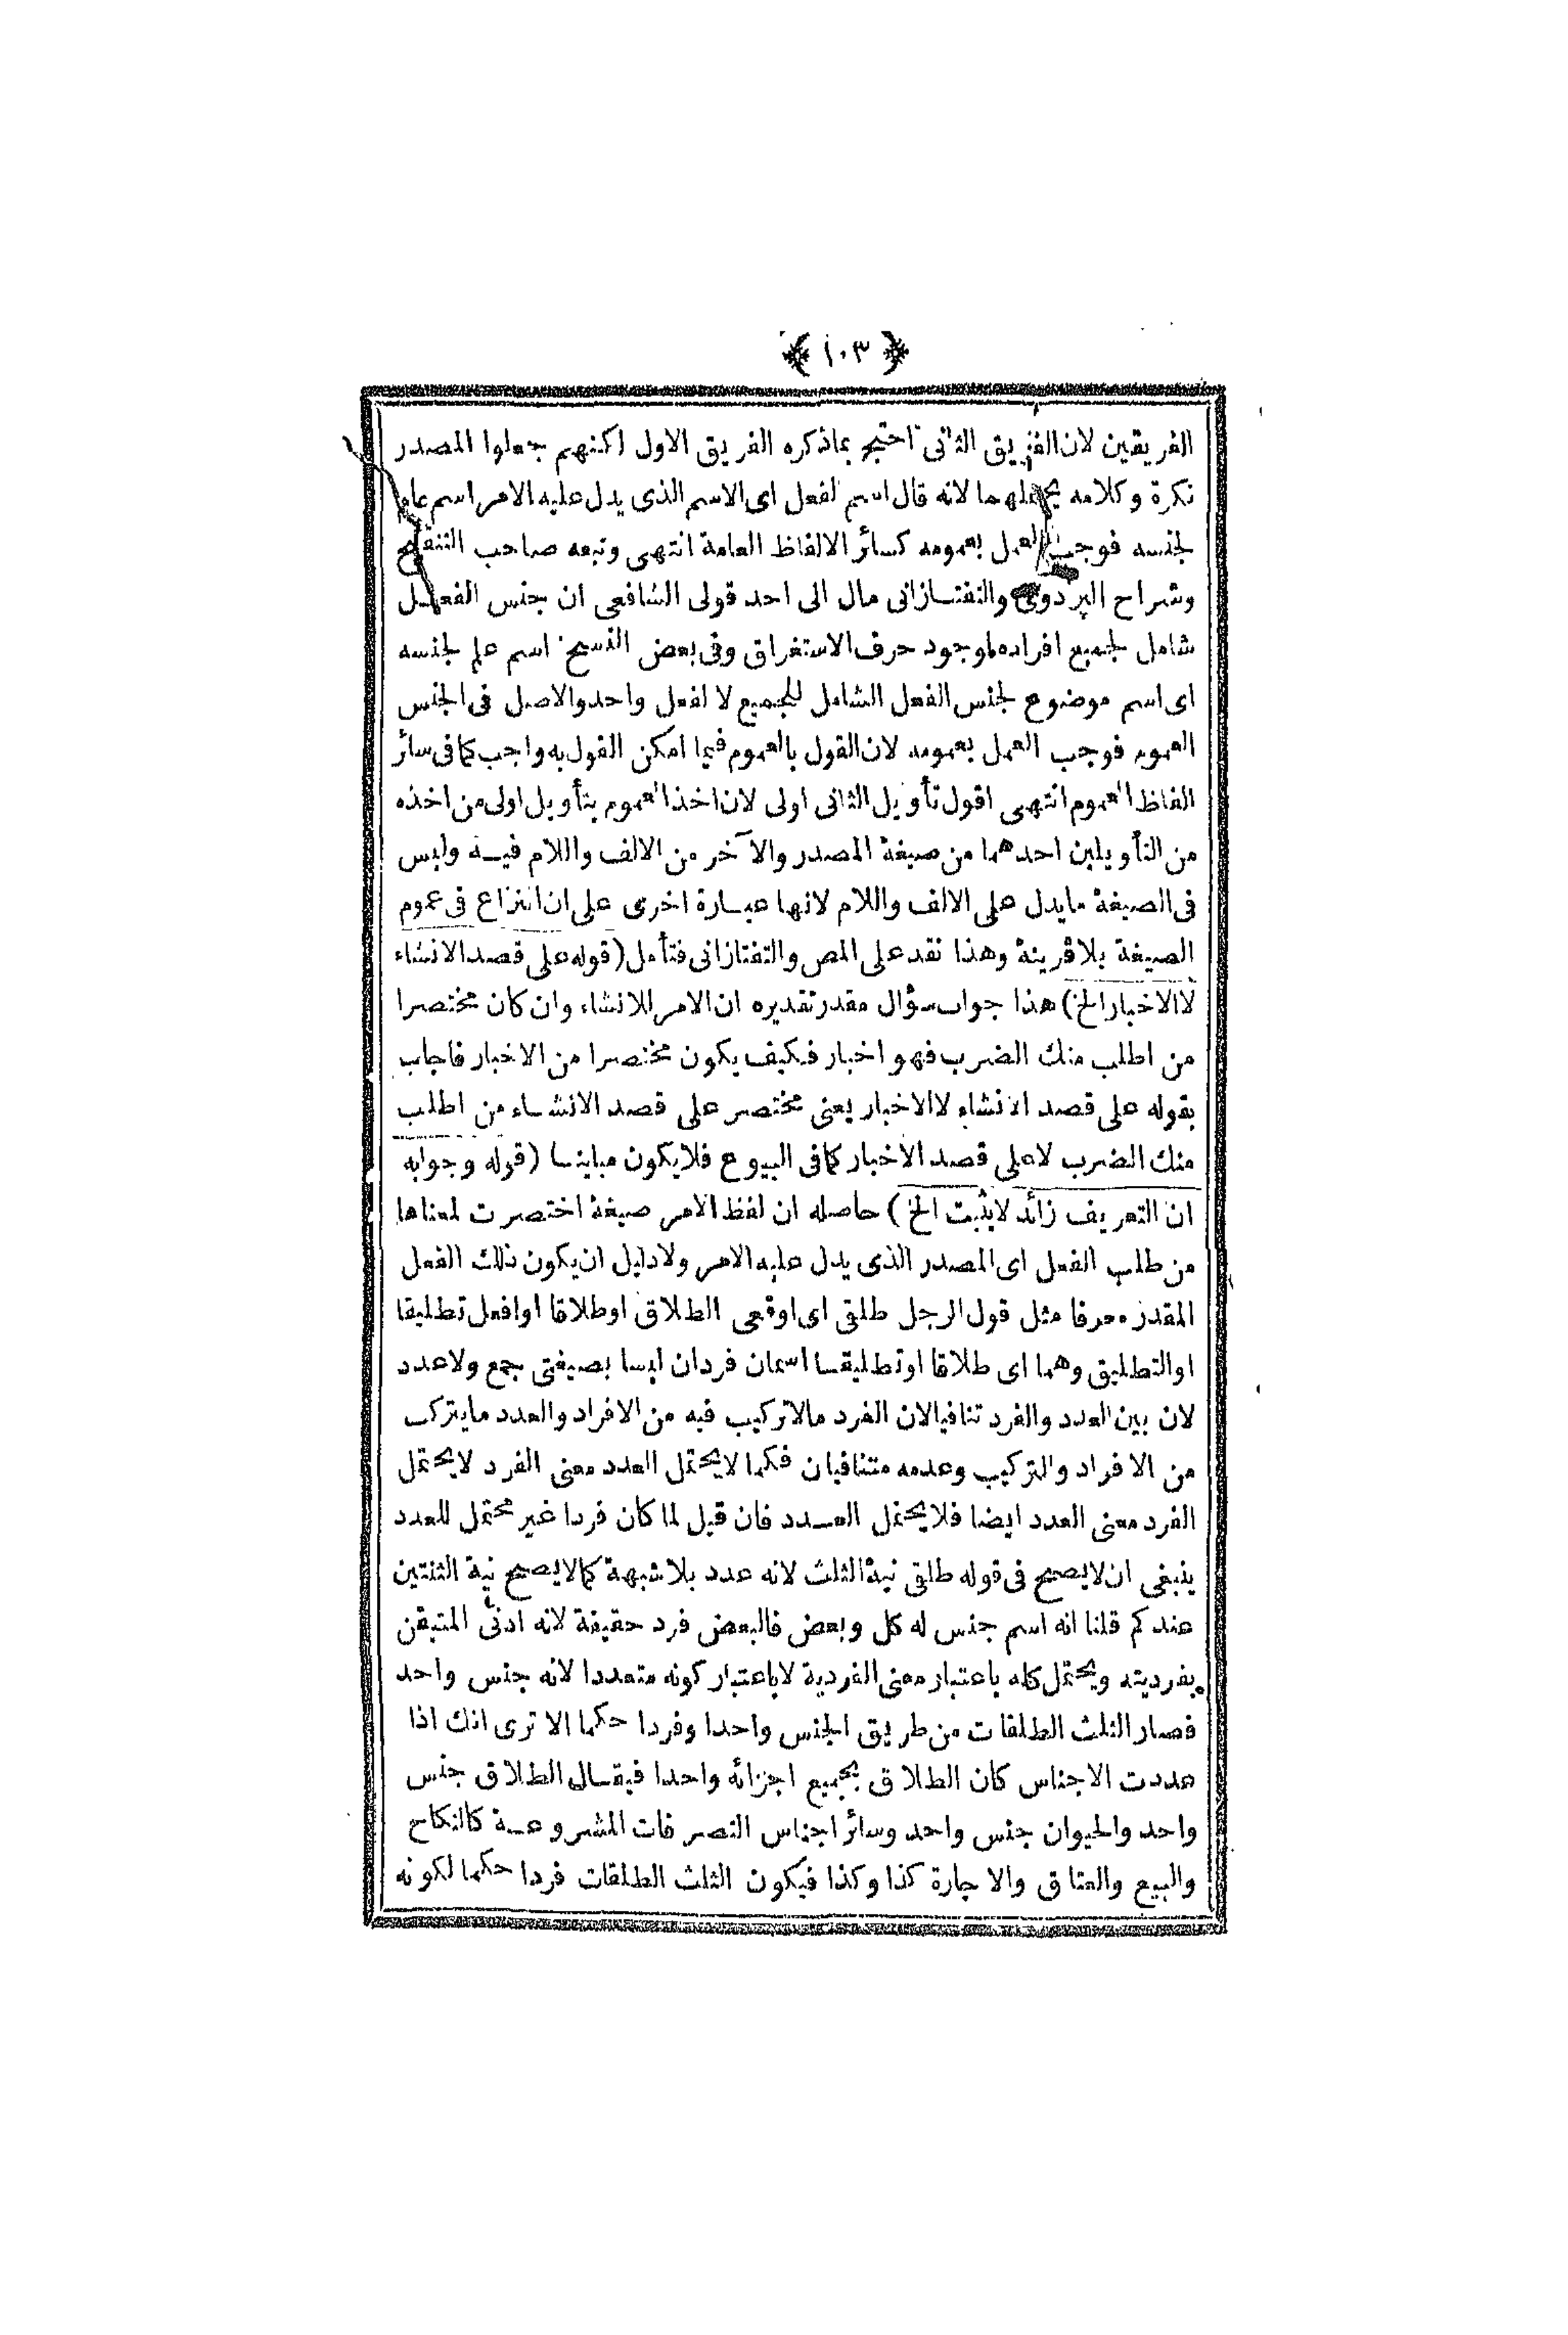 ﴿ ١٠٣ ﴾
الفريقين لان الفريق الثانى احتج بماذكره الفريق الاول لكنهم جعلوا المصدر
نكرة وكلامه يحتملهما لانه قال اسم لفعل اى الاسم الذى يدل عليه الامر اسم عام
لجنسه فوجب العمل بعمومه كسائر الالفاظ العامة انتهى وتبعه صاحب التنقيح
وشراح البزدوى والتفتازانى مال الى احد قولى الشافعى ان جنس الفعل
شامل لجميع افراده لوجود حرف الاستغراق وفى بعض النسخ اسم علم لجنسه
اى اسم موضوع لجنس الفعل الشامل للجميع لا لفعل واحد والاصل فى الجنس
العموم فوجب العمل بعمومه لان القول بالعموم فيما امكن القول به واجب كما فى سائر
الفاظ العموم انتهى اقول تأويل الثانى اولى لان اخذ العموم بتأويل اولى من اخذه
من التأويلين احدهما من صيغة المصدر والآخر من الالف واللام فيه وليس
فى الصيغة مايدل على الالف واللام لانها عبارة اخرى على ان النزاع فى عموم
الصيغة بلا قرينة وهذا نقد على المص والتفتازانى فتأمل (قوله على قصد الانشاء
لا الاخبار الخ) هذا جواب سؤال مقدر تقديره ان الامر للانشاء وان كان مختصرا
من اطلب منك الضرب فهو اخبار فكيف يكون مختصرا من الاخبار فاجاب
بقوله على قصد الانشاء لا الاخبار يعنى مختصر على قصد الانشاء من اطلب
منك الضرب لا على قصد الاخبار كما فى البيوع فلا يكون مباينا (قوله وجوابه
ان التعريف زائد لايثبت الخ) حاصله ان لفظ الامر صيغة اختصرت لمعناها
من طلب الفعل اى المصدر الذى يدل عليه الامر ولادليل ان يكون ذلك الفعل
المقدر معرفا مثل قول الرجل طلقى اى اوقعى الطلاق اوطلاقا اوافعل تطليقا
اوالتطليق وهما اى طلاقا اوتطليقا اسمان فردان ليسا بصيغتى جمع ولاعدد
لان بين العدد والفرد تنافيا لان الفرد مالا تركيب فيه من الافراد والعدد مايتركب
من الافراد والتركيب وعدمه متنافيان فكما لايحتمل العدد معنى الفرد لايحتمل
الفرد معنى العدد ايضا فلا يحتمل العدد فان قيل لما كان فردا غير محتمل للعدد
ينبغى ان لايصح فى قوله طلقى نية الثلث لانه عدد بلا شبهة كما لايصح نية الثنتين
عندكم قلنا انه اسم جنس له كل وبعض فالبعض فرد حقيقة لانه ادنى المتيقن
بفرديته ويحتمل كله باعتبار معنى الفردية لاباعتبار كونه متعددا لانه جنس واحد
فصار الثلث الطلقات من طريق الجنس واحدا وفردا حكما الا ترى انك اذا
عددت الاجناس كان الطلاق بجميع اجزائه واحدا فيقال الطلاق جنس
واحد والحيوان جنس واحد وسائر اجناس التصرفات المشروعة كالنكاح
والبيع والعتاق والاجارة كذا وكذا فيكون الثلث الطلقات فردا حكما لكونه